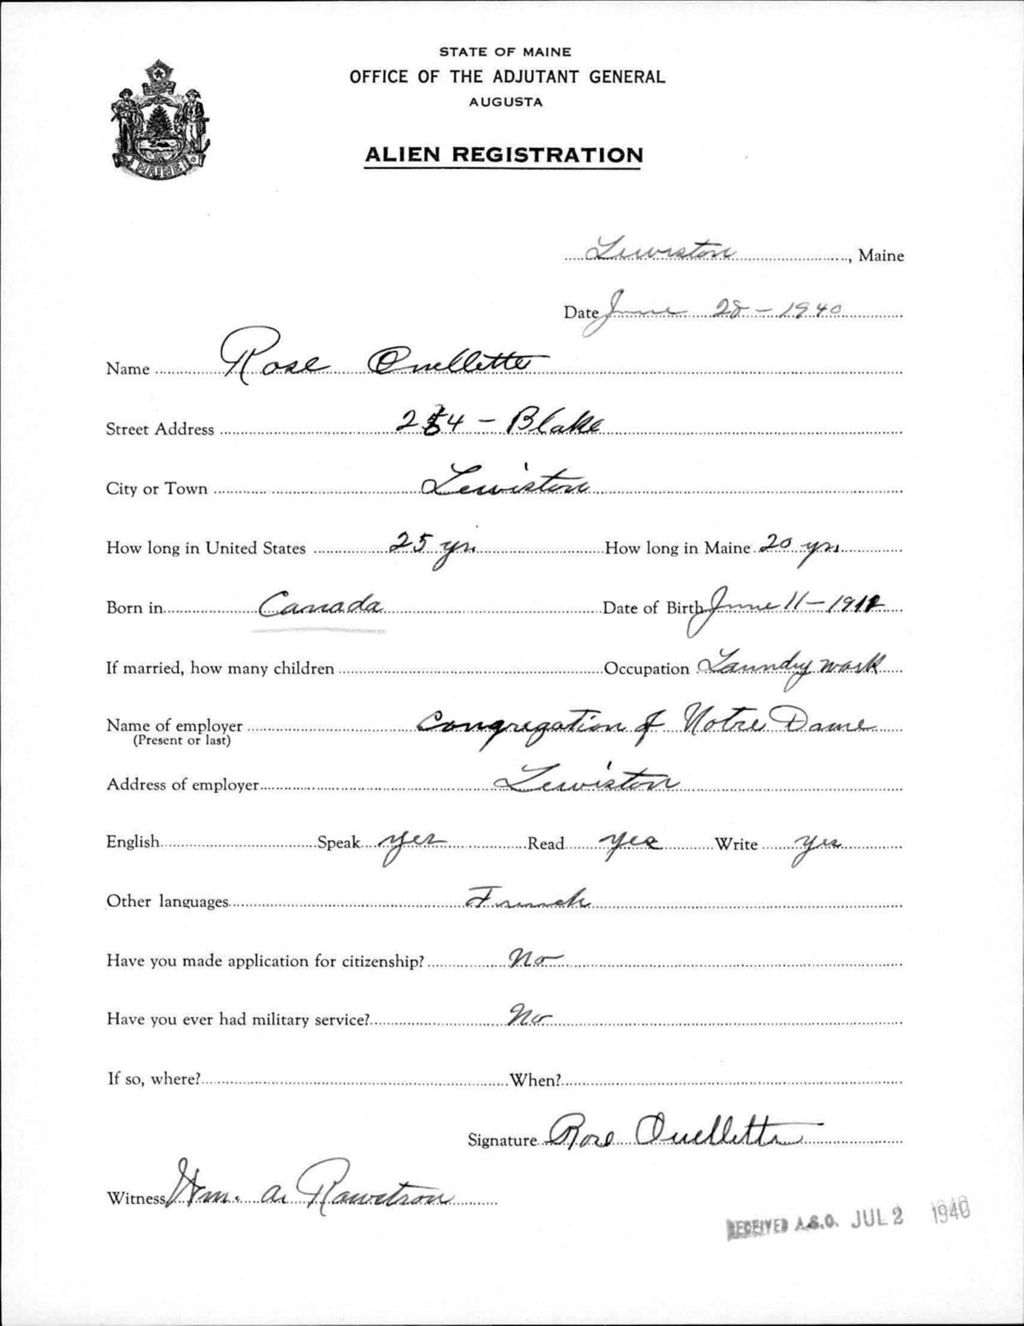 STATE OF MAINE
OFFICE OF THE ADJUTANT GENERAL
AUGUSTA
ALIEN REGISTRATION
MAINE
Lewiston, Maine
Date June 28 - 1940
Name Rose Ouellette
Street Address - Blake
City or Town Lewiston
How long in United States 25 yrs How long in Maine 20 yrs
Born in Canada Date of Birth June 11 -
If married, how many children Occupation Laundry work
Name of employer Congregation of Notre Dame
(Present or last)
Address of employer Lewiston
English Speak yes Read yes Write yes
Other languages French
Have you made application for citizenship? No
Have you ever had military service? No
If so, where? When?
Signature Rose Ouellette
Witness Wm. A.
RECEIVED A.G.O. JUL 2 1940